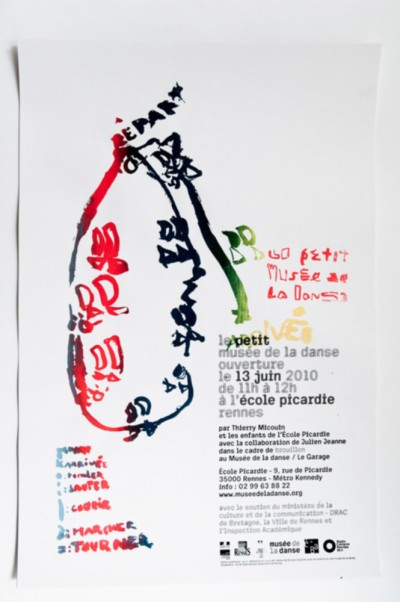 DÉPART
LE petit
MUSÉE de
LA DANSE
ARRIVÉE
le petit
musée de la danse
ouverture
le 13 juin 2010
de 11h à 12h
à l'école picardie
rennes
par Thierry Micouin
et les enfants de l'École Picardie
avec la collaboration de Julien Jeanne
dans le cadre de brouillon
au Musée de la danse / Le Garage
École Picardie - 9, rue de Picardie
35000 Rennes - Métro Kennedy
Info : 02 99 63 88 22
www.museedeladanse.org
avec le soutien du ministère de la
culture et de la communication - DRAC
de Bretagne, la Ville de Rennes et
l'Inspection Académique
ARRIVÉE
SAUTER
COURIR
MARCHER
TOURNER
musée de
la danse